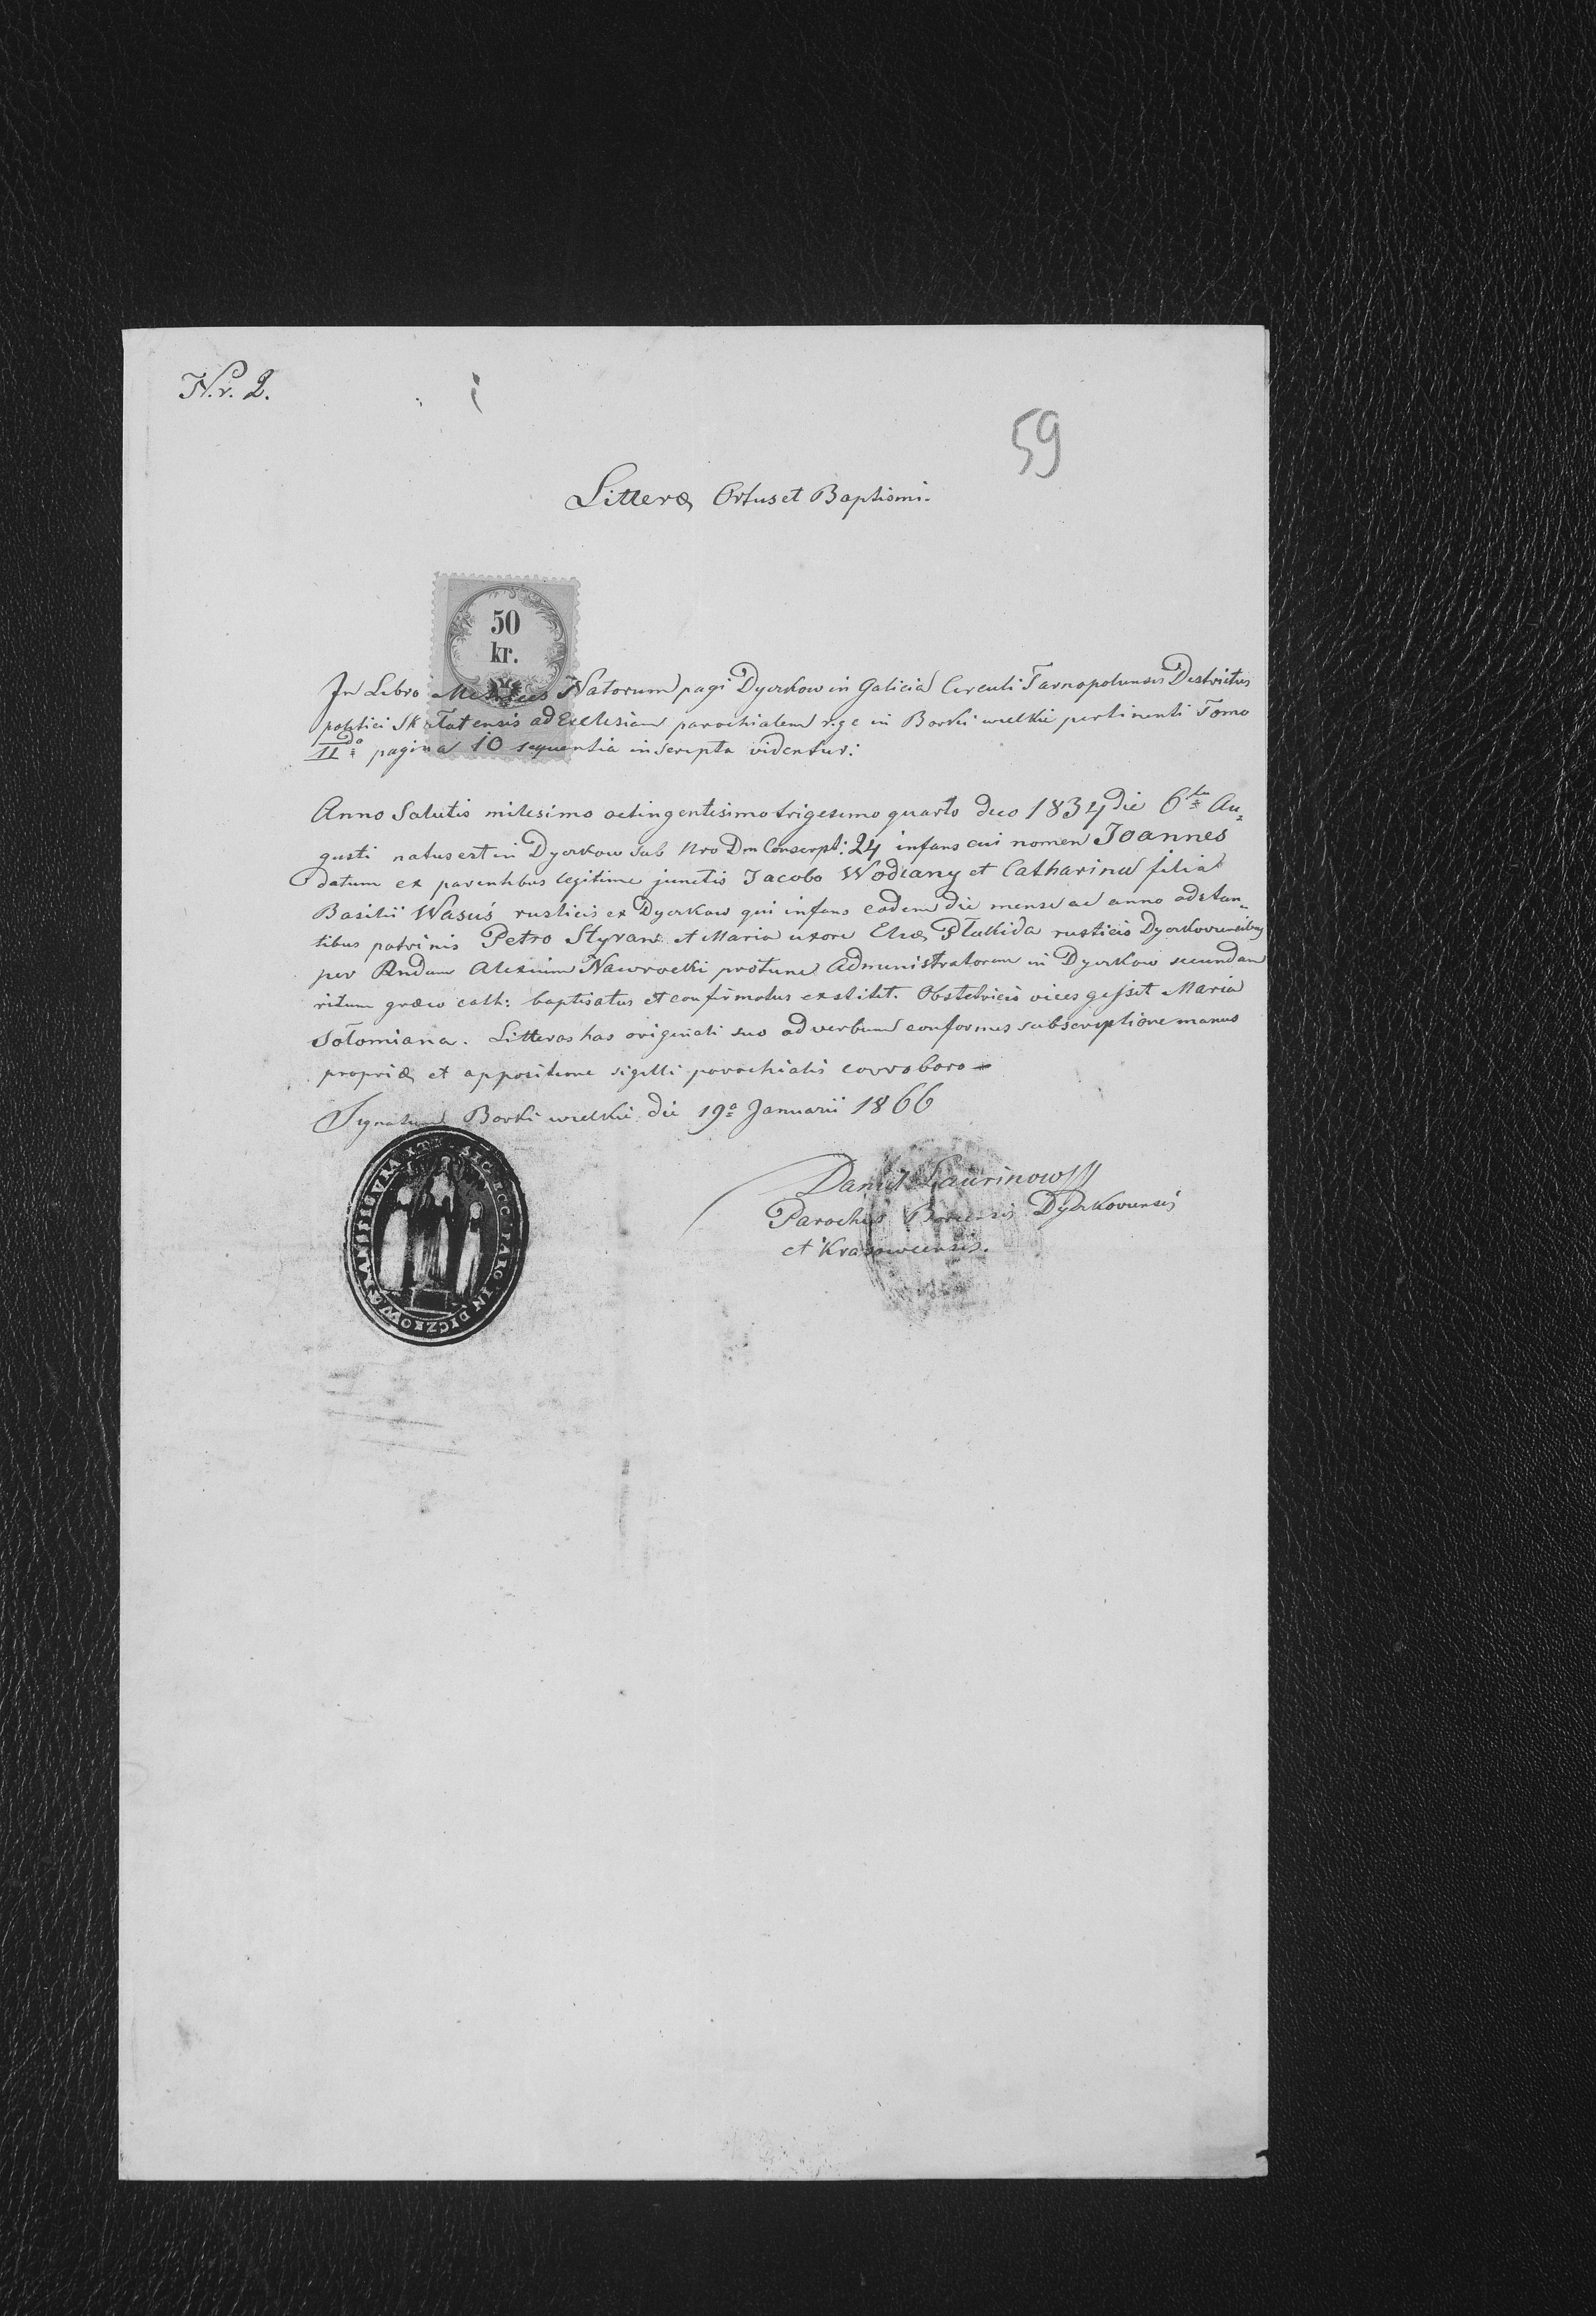 Nr. 2.
59
Litteræ Ortus et Baptismi.
50
kr.
In Libro Metrices Natorum pagi Dyczkow in Galicia Circuli Tarnopolensis Districtus
politici Skałatensis ad Ecclesiam parochialem rgc in Borki wielkie pertinenti Tomo
IIdo pagina 10 sequentia inscripta videntur:
Anno Salutis milesimo octingentesimo trigesimo quarto dico 1834 die 6ta Au=
gusti natus est in Dyczkow sub Nro Dm Conscript: 24 infans cui nomen Joannes
datum ex parentibus legitime junctis Jacobo Wodiany et Catharina filia
Basilii Wasuś rusticis ex Dyczkow qui infans eodem die mense ac anno adstan=
tibus patrinis Petro Styran et Maria uxore Eliæ Płukida rusticis Dyczkoviensibus
per Rndum Alexium Nawrocki protunc Administratorem in Dyczkow secundum
ritum græco cath: baptisatus et confirmatus exstitit. Obstetricis vices gessit Maria
Sołomiana. Litteras has originali suo ad verbum conformes subscriptione manus
propriæ et appositione sigilli parochialis corroboro
Signatum Borki wielkie die 19a Januarii 1866
Daniel Laurinow
Parochus Borcensis Dyczkoviensis
et Krasowcensis.
SIG. ECC. PARO. IN DICZKOW TRANSFIGURA. XTI.